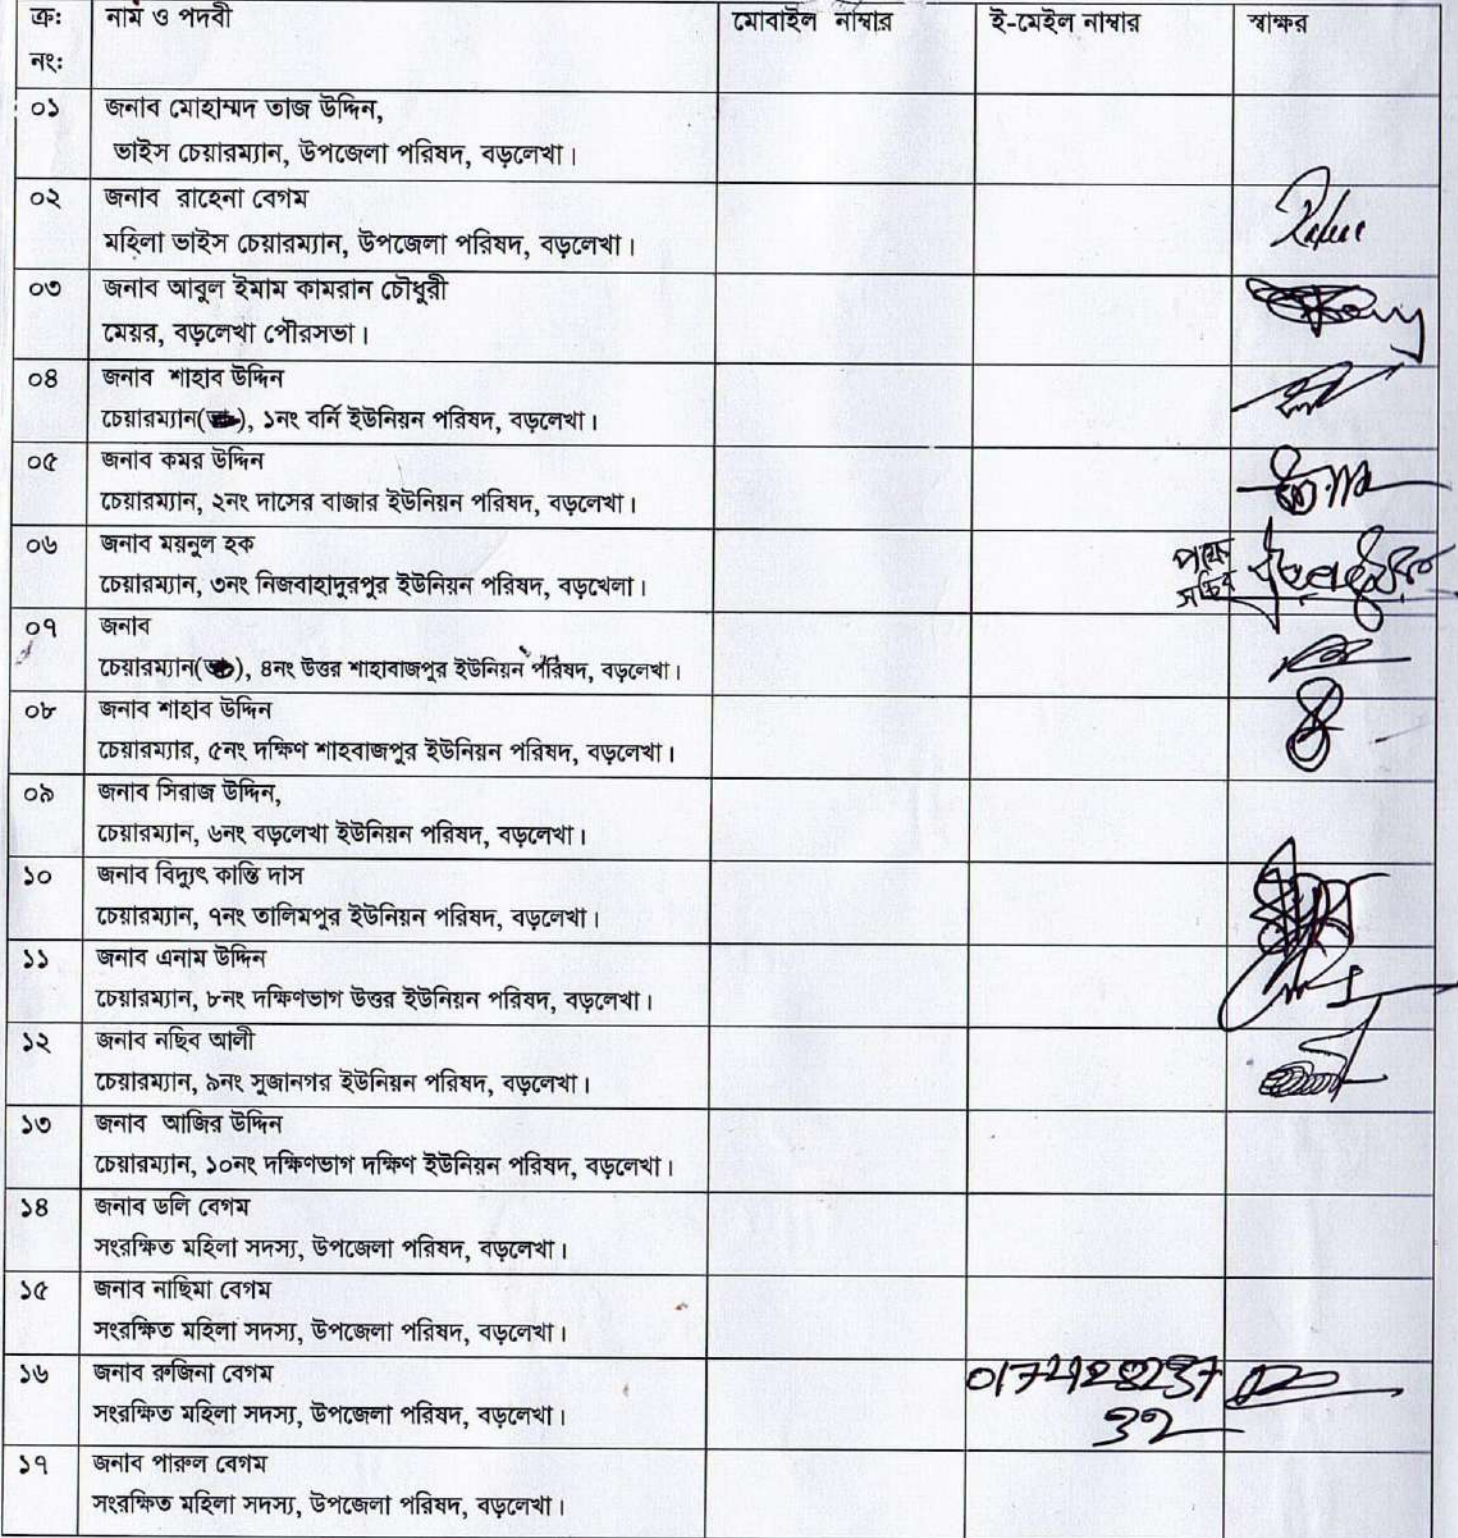 ক্র: নাম ও পদবী মোবাইল নাম্বার ই-মেইল নাম্বার স্বাক্ষর
নং:
০১ জনাব মোহাম্মদ তাজ উদ্দিন,
ভাইস চেয়ারম্যান, উপজেলা পরিষদ, বড়লেখা।
০২ জনাব রাহেনা বেগম
মহিলা ভাইস চেয়ারম্যান, উপজেলা পরিষদ, বড়লেখা।
০৩ জনাব আবুল ইমাম কামরান চৌধুরী
মেয়র, বড়লেখা পৌরসভা।
০৪ জনাব শাহাব উদ্দিন
চেয়ারম্যান( ), ১নং বর্নি ইউনিয়ন পরিষদ, বড়লেখা।
০৫ জনাব কমর উদ্দিন
চেয়ারম্যান, ২নং দাসের বাজার ইউনিয়ন পরিষদ, বড়লেখা।
০৬ জনাব ময়নুল হক
চেয়ারম্যান, ৩নং নিজবাহাদুরপুর ইউনিয়ন পরিষদ, বড়খেলা।
পক্ষে
সচিব
০৭ জনাব
চেয়ারম্যান( ), ৪নং উত্তর শাহাবাজপুর ইউনিয়ন পরিষদ, বড়লেখা।
০৮ জনাব শাহাব উদ্দিন
চেয়ারম্যার, ৫নং দক্ষিণ শাহবাজপুর ইউনিয়ন পরিষদ, বড়লেখা।
০৯ জনাব সিরাজ উদ্দিন,
চেয়ারম্যান, ৬নং বড়লেখা ইউনিয়ন পরিষদ, বড়লেখা।
১০ জনাব বিদ্যুৎ কান্তি দাস
চেয়ারম্যান, ৭নং তালিমপুর ইউনিয়ন পরিষদ, বড়লেখা।
১১ জনাব এনাম উদ্দিন
চেয়ারম্যান, ৮নং দক্ষিণভাগ উত্তর ইউনিয়ন পরিষদ, বড়লেখা।
১২ জনাব নছিব আলী
চেয়ারম্যান, ৯নং সুজানগর ইউনিয়ন পরিষদ, বড়লেখা।
১৩ জনাব আজির উদ্দিন
চেয়ারম্যান, ১০নং দক্ষিণভাগ দক্ষিণ ইউনিয়ন পরিষদ, বড়লেখা।
১৪ জনাব ডলি বেগম
সংরক্ষিত মহিলা সদস্য, উপজেলা পরিষদ, বড়লেখা।
১৫ জনাব নাছিমা বেগম
সংরক্ষিত মহিলা সদস্য, উপজেলা পরিষদ, বড়লেখা।
১৬ জনাব রুজিনা বেগম
সংরক্ষিত মহিলা সদস্য, উপজেলা পরিষদ, বড়লেখা।
১৭ জনাব পারুল বেগম
সংরক্ষিত মহিলা সদস্য, উপজেলা পরিষদ, বড়লেখা।